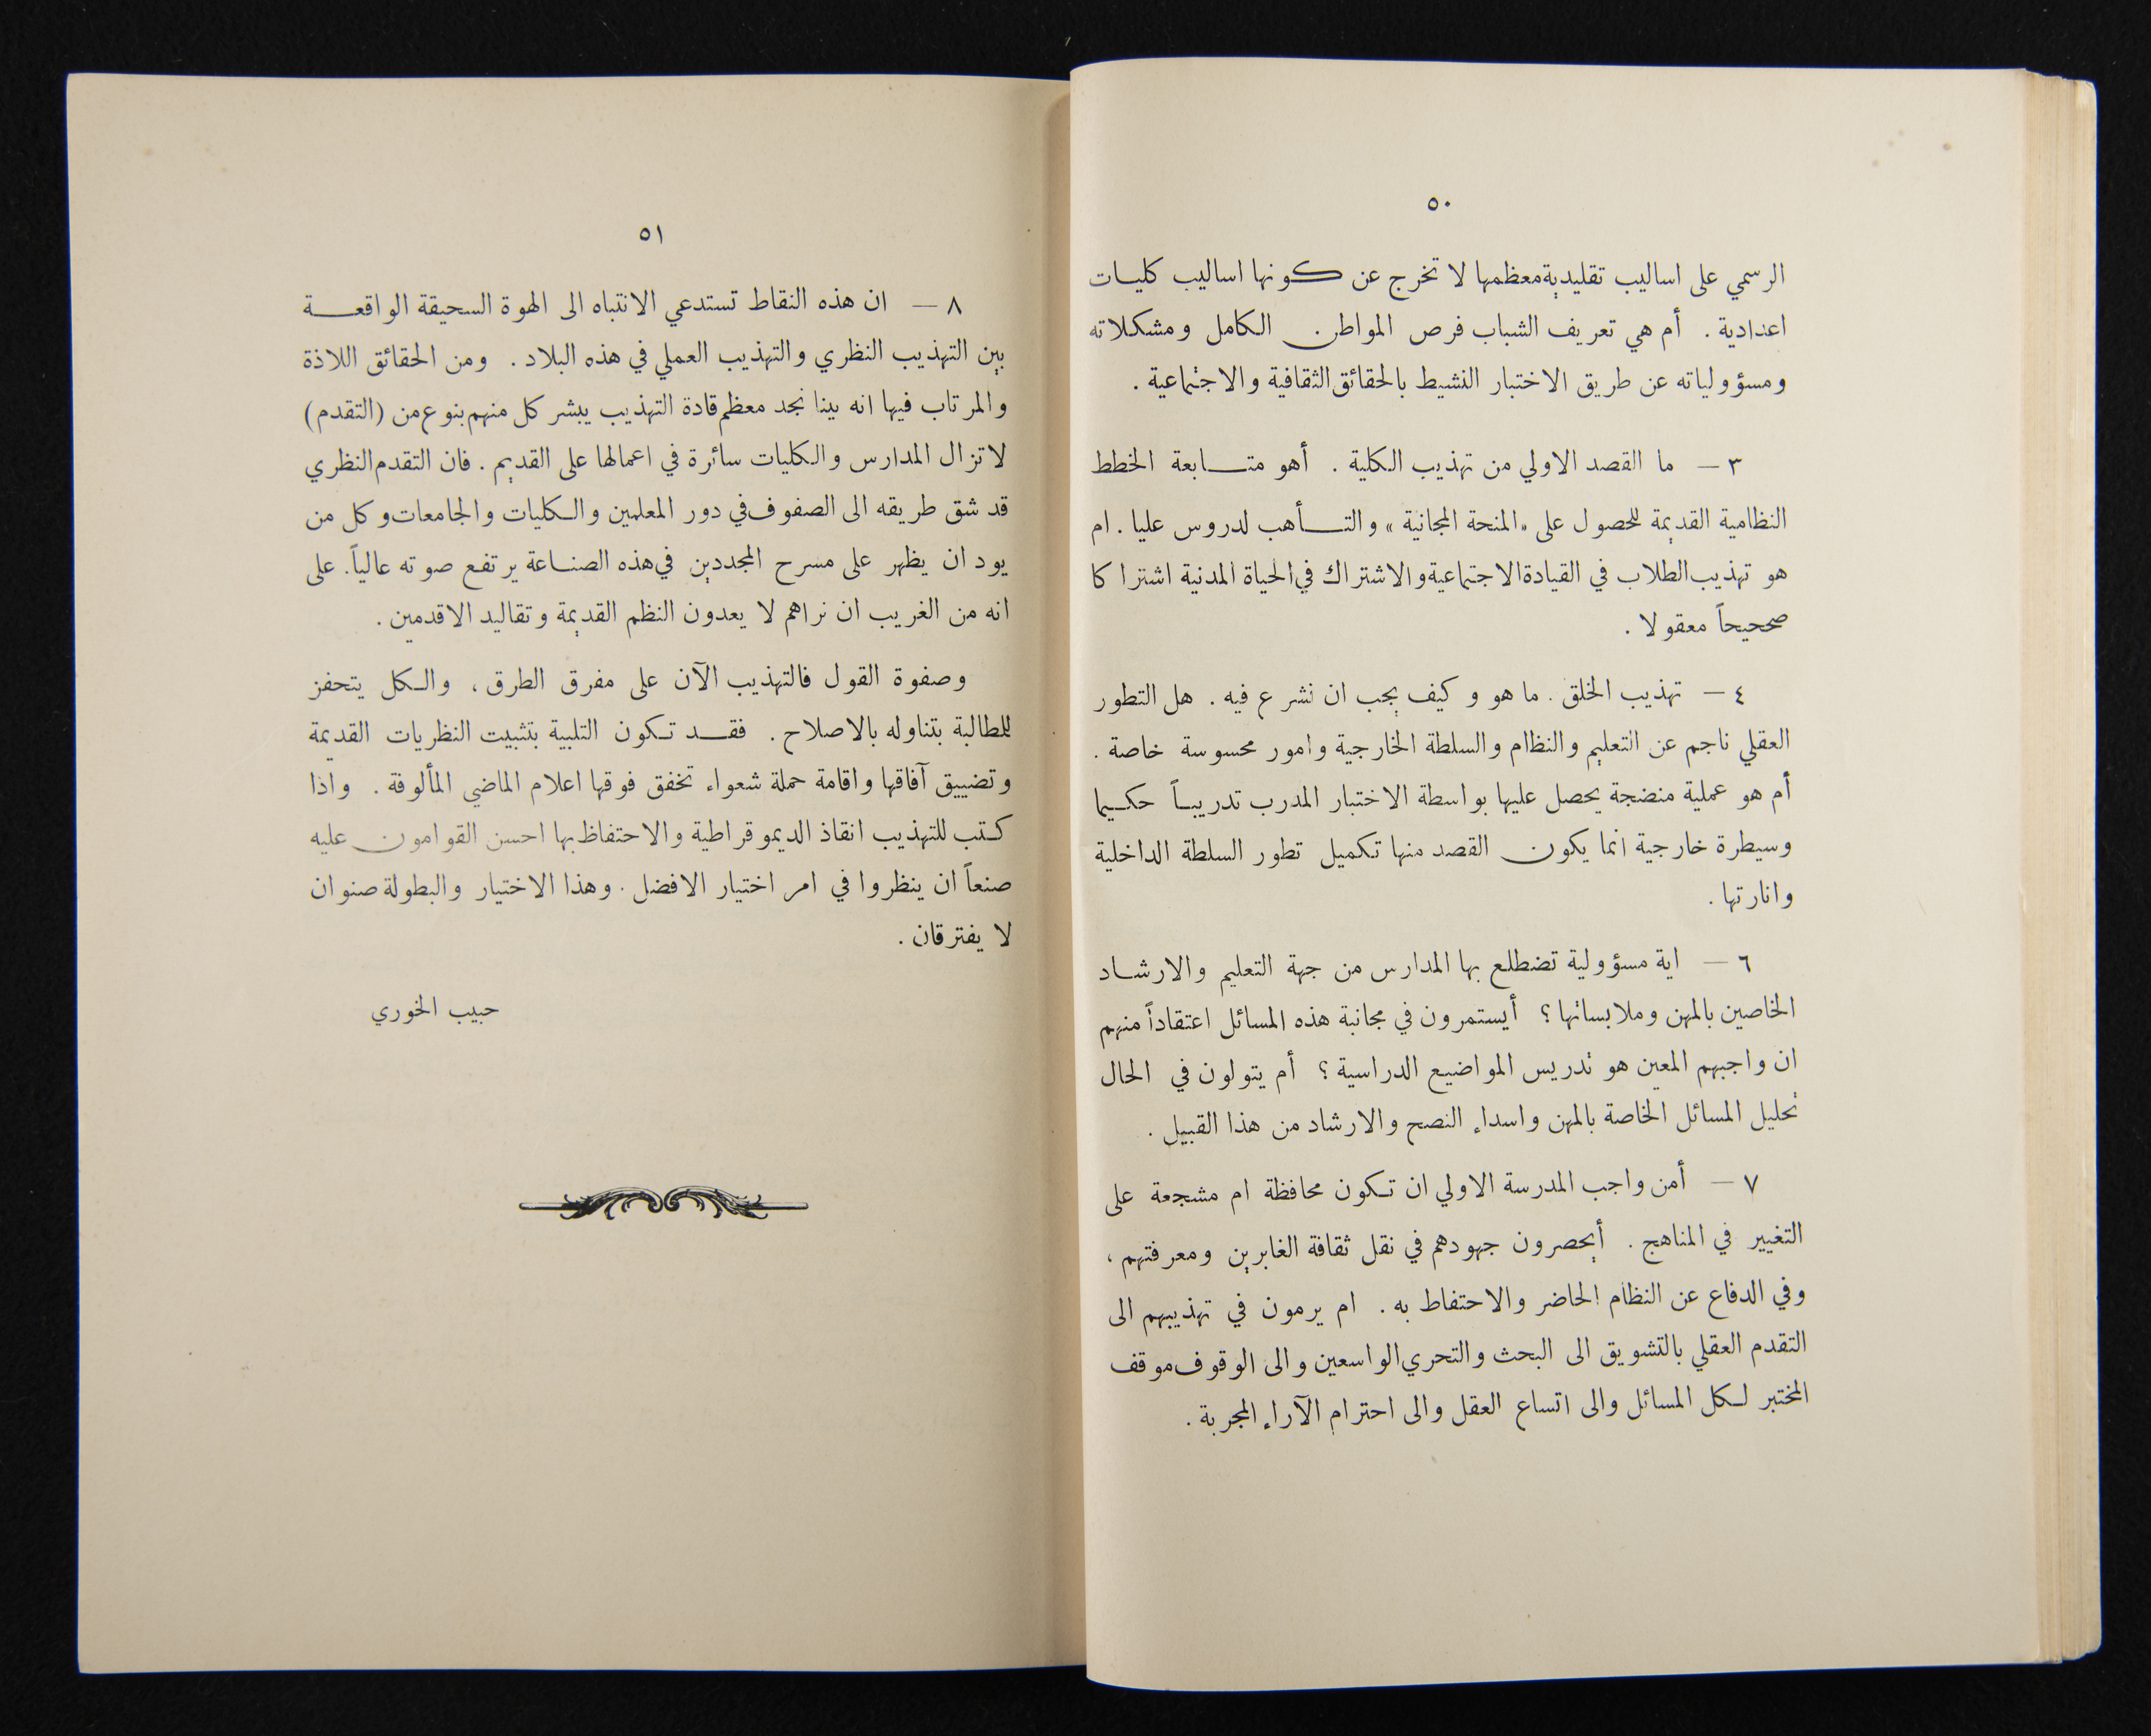 ٥٠
الرسمي على اساليب تقليدية معظمها لا تخرج عن كونها اساليب كليات
اعدادية . أم هي تعريف الشباب فرص المواطن الكامل ومشكلاته
ومسؤولياته عن طريق الاختبار النشيط بالحقائق الثقافية والاجتماعية .
٣ — ما القصد الاولي من تهذيب الكلية . أهو متابعة الخطط
النظامية القديمة للحصول على «المنحة المجانية» والتأهب لدروس عليا . ام
هو تهذيب الطلاب في القيادة الاجتماعية والاشتراك في الحياة المدنية اشتراكا
صحيحاً معقولا .
٤ — تهذيب الخلق . ما هو وكيف يجب ان نشرع فيه . هل التطور
العقلي ناجم عن التعليم والنظام والسلطة الخارجية وامور محسوسة خاصة .
أم هو عملية منضجة يحصل عليها بواسطة الاختبار المدرب تدريباً حكيما
وسيطرة خارجية انما يكون القصد منها تكميل تطور السلطة الداخلية
وانارتها .
٦ — اية مسؤولية تضطلع بها المدارس من جهة التعليم والارشاد
الخاصين بالمهن وملابساتها ؟ أيستمرون في مجانبة هذه المسائل اعتقاداً منهم
ان واجبهم المعين هو تدريس المواضيع الدراسية ؟ أم يتولون في الحال
تحليل المسائل الخاصة بالمهن واسداء النصح والارشاد من هذا القبيل .
٧ — أمن واجب المدرسة الاولي ان تكون محافظة ام مشجعة على
التغيير في المناهج . أيحصرون جهودهم في نقل ثقافة الغابرين ومعرفتهم ،
وفي الدفاع عن النظام الحاضر والاحتفاط به . ام يرمون في تهذيبهم الى
التقدم العقلي بالتشويق الى البحث والتحري الواسعين والى الوقوف موقف
المختبر لكل المسائل والى اتساع العقل والى احترام الآراء المجربة .
٥١
٨ — ان هذه النقاط تستدعي الانتباه الى الهوة السحيقة الواقعة
بين التهذيب النظري والتهذيب العملي في هذه البلاد . ومن الحقائق اللاذة
والمرتاب فيها انه بينا نجد معظم قادة التهذيب يبشر كل منهم بنوع من (التقدم)
لا تزال المدارس والكليات سائرة في اعمالها على القديم . فان التقدم النظري
قد شق طريقه الى الصفوف في دور المعلمين والكليات والجامعات وكل من
يود ان يظهر على مسرح المجددين في هذه الصناعة يرتفع صوته عالياً. على
انه من الغريب ان نراهم لا يعدون النظم القديمة وتقاليد الاقدمين .
وصفوة القول فالتهذيب الآن على مفرق الطرق ، والكل يتحفز
للطالبة بتناوله بالاصلاح . فقد تكون التلبية بتثبيت النظريات القديمة
وتضييق آفاقها واقامة حملة شعواء تخفق فوقها اعلام الماضي المألوفة . واذا
كتب للتهذيب انقاذ الديموقراطية والاحتفاظ بها احسن القوامون عليه
صنعاً ان ينظروا في امر اختيار الافضل . وهذا الاختيار والبطولة صنوان
لا يفترقان .
حبيب الخوري